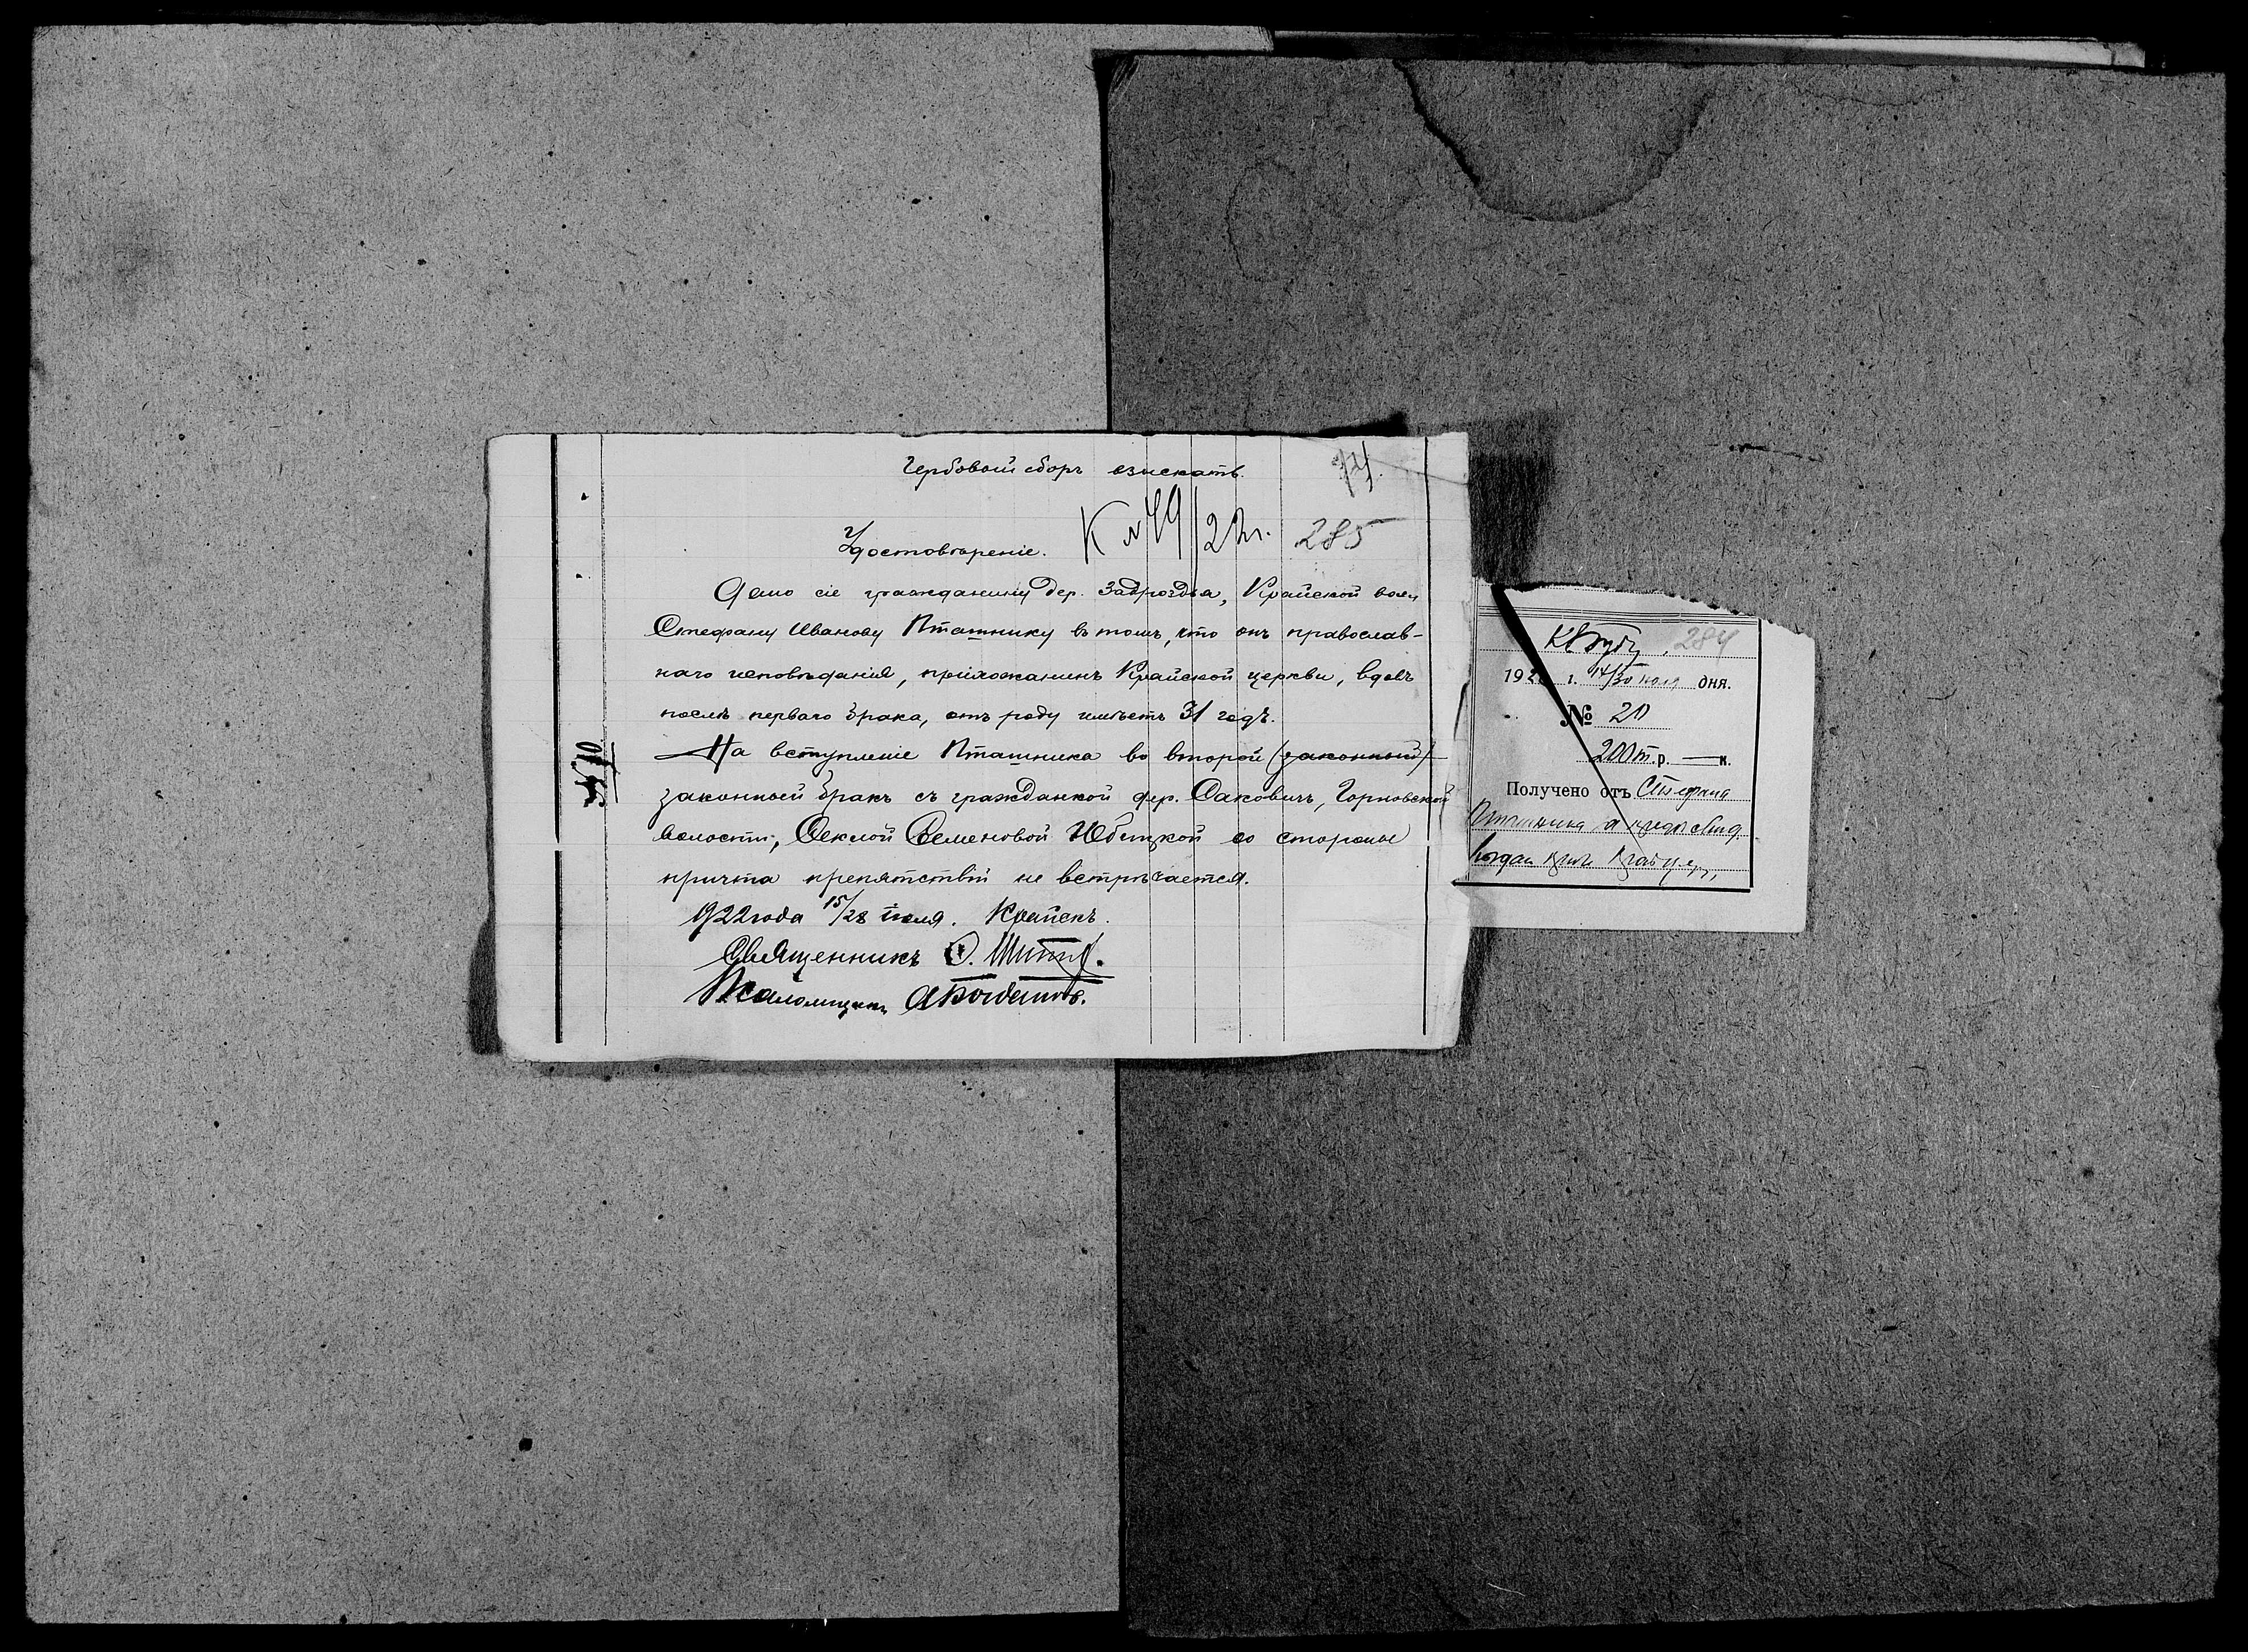 Гербовый сборъ взыскать.
74.
К № 49/22 г. 285
Удостовѣреніе.
Дано сіе гражданину дер. Заброздья, Крайской вол.
Стефану Иванову Пташнику въ томъ, что онъ православ-
наго исповѣданія, прихожанинъ Крайской церкви, вдовъ
послѣ перваго брака, отъ роду имѣетъ 31 годъ.
На вступленіе Пташника во второй (законный)
законный бракъ съ гражданкой дер. Саковичъ,
волости, Феклой Семеновой со стороны
причта препятствій не встрѣчается.
1922 года 15/28 іюля. Крайскъ.
Священникъ
Псаломщикъ А Богдановъ.
№ 110
284
192 г. дня.
№ 20
200 т. р. — к.
Получено отъ Стефана
Пташника